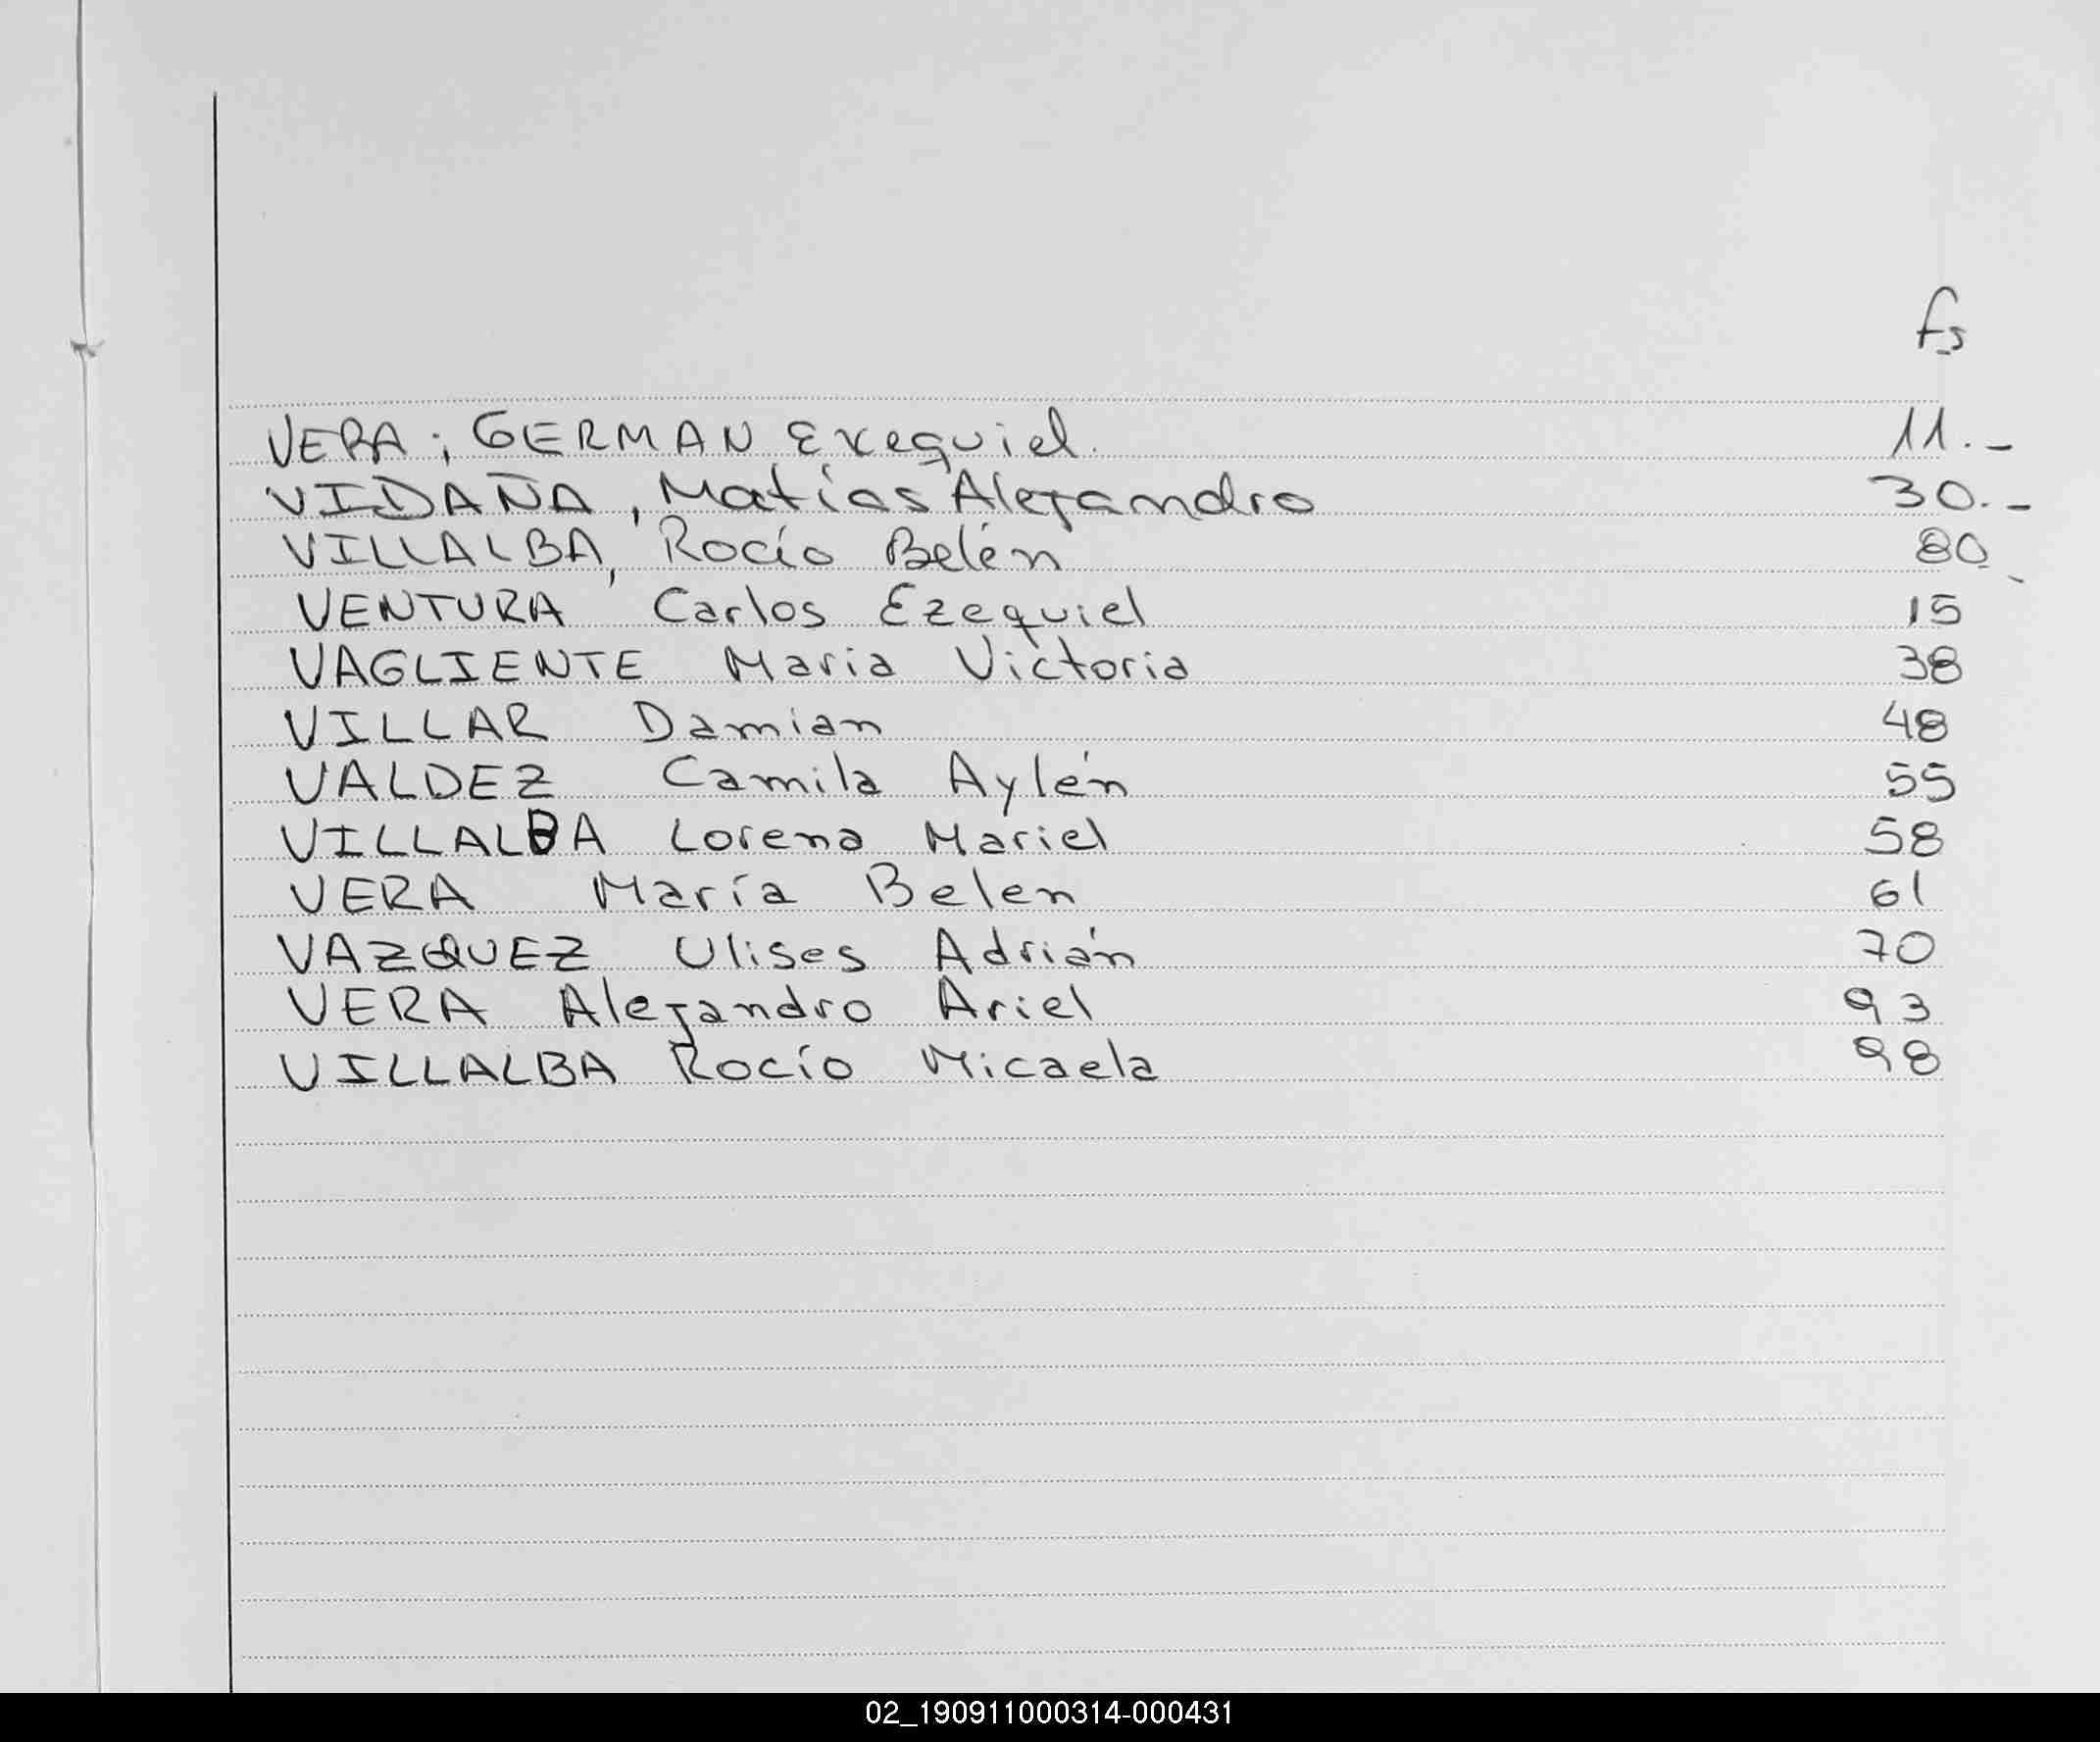 fs
VERA; GERMAN Exequiel. 11.-
VIDAÑA, Matías Alejandro 30.-
VILLALBA, Rocío Belén 80.-
VENTURA Carlos Ezequiel 15
VAGLIENTE Maria Victoria 38
VILLAR Damian 48
VALDEZ Camila Aylén 55
VILLALBA Lorena Mariel 58
VERA María Belen 61
VAZQUEZ Ulises Adrián 70
VERA Alejandro Ariel 93
VILLALBA Rocío Micaela 98
02_190911000314-000431